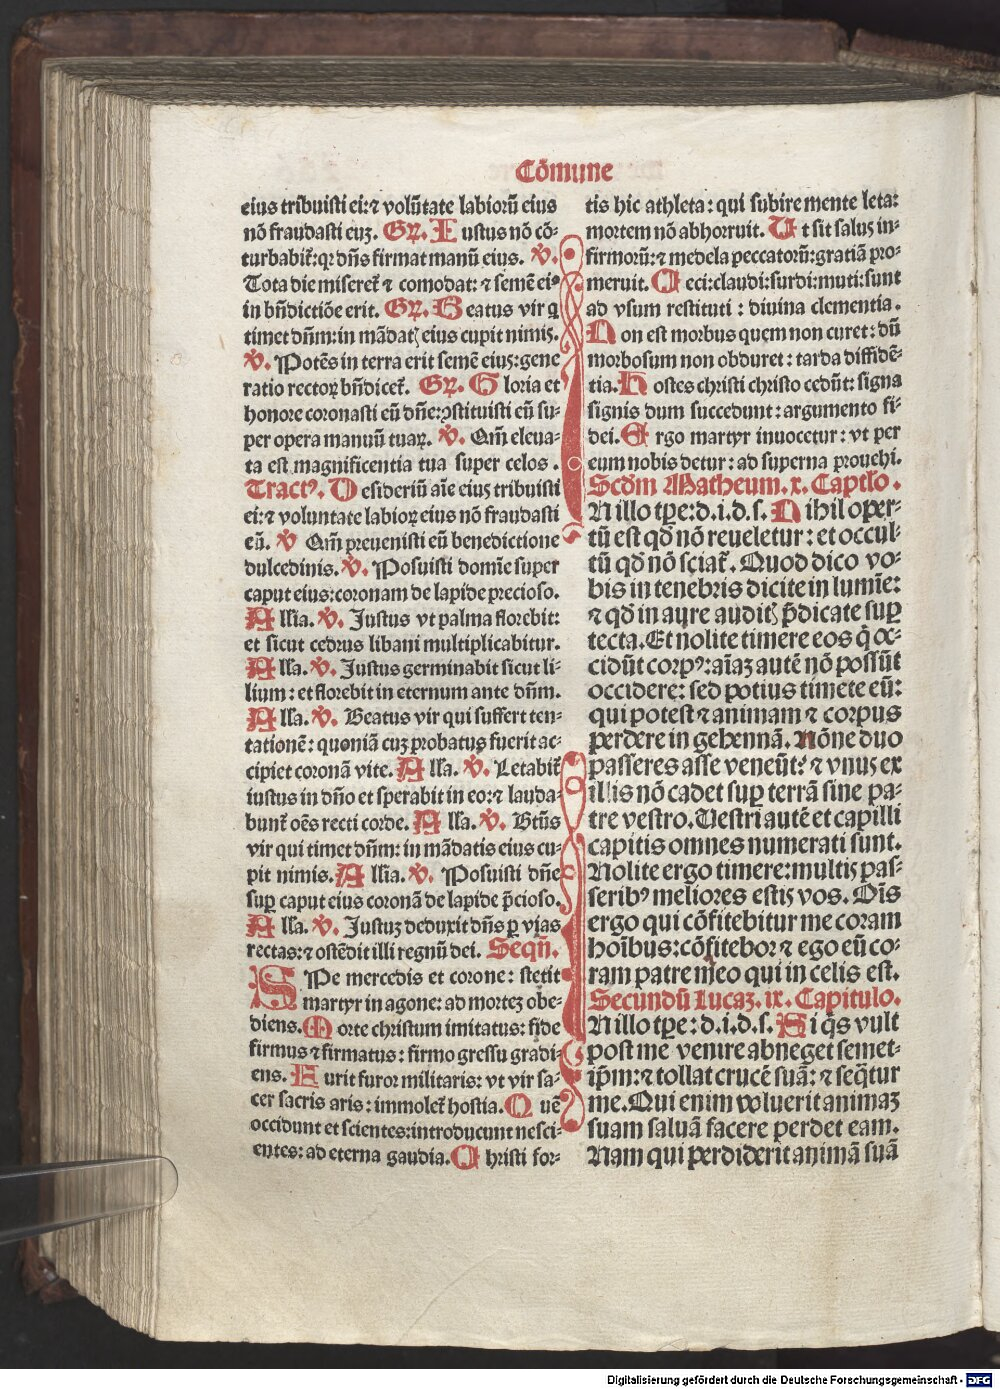 Cõmune
eius tribuisti ei:⁊ volũtate labiorũ eius
nõ fraudasti euʒ. Gꝝ. Iustus nõ cõ-
turbabiť:qꝛ dñs firmat manũ eius. V̓.
Tota die misereť ⁊ comodat: ⁊ semẽ ei⁹
in bñdictiõe erit. Gꝝ. Beatus vir q̇
timet dñm:in mãdatꝭ eius cupit nimis.
V̓. Potẽs in terra erit semẽ eius:gene
ratio rectoꝝ bñdiceť. Gꝝ. Gloria et
honore coronasti eũ dñe:ꝯstituisti eũ su-
per opera manuũ tuaꝝ. V̓. Qm̃ eleua-
ta est magnificentia tua super celos.
Tract⁹. Desideriũ aĩe eius tribuisti
ei:⁊ voluntate labioꝝ eius nõ fraudasti
eũ. V̓ Qm̃ preuenisti eũ benedictione
dulcedinis. V̓. Posuisti domĩe super
caput eius:coronam de lapide precioso.
Allĩa. V̓. Justus vt palma florebit:
et sicut cedrus libani multiplicabitur.
Alla. V̓. Justus germinabit sicut li-
lium: et florebit in eternum ante dñm.
Alla. V̓. Beatus vir qui suffert ten-
tationẽ: quoniã cuʒ probatus fuerit ac-
cipiet coronã vite. Alla. V̓. Letabiť
iustus in dño et sperabit in eo:⁊ lauda-
bunť oẽs recti corde. Alla. V̓. Btũs
vir qui timet dñm: in mãdatis eius cu-
pit nimis. Allĩa. V̓. Posuisti dñe
suꝑ caput eius coronã de lapide p̃cioso.
Alla. V̓. Justuʒ deduxit dñs ꝑ vias
rectas:⁊ ostẽdit illi regnũ dei. Seqñ.
SPe mercedis et corone: stetit
martyr in agone: ad morteʒ obe-
diens. Morte christum imitatus: fide
firmus ⁊ firmatus: firmo gressu gradi-
ens. Furit furor militaris: vt vir sa-
cer sacris aris: immoleť hostia. Quẽ
occidunt et scientes:introducunt nesci-
entes: ad eterna gaudia. Christi for-
tis hic athleta: qui subire mente leta:
mortem nõ abhorruit. Ut sit salus in-
firmorũ:⁊ medela peccatorũ:gratiã pro-
meruit. Ceci:claudi:surdi:muti:sunt
ad vsum restituti: diuina clementia.
Non est morbus quem non curet: dũ
morbosum non obduret: tarda diffidẽ-
tia. Hostes christi christo cedũt: signa
signis dum succedunt: argumento fi-
dei. Ergo martyr inuocetur: vt per
eum nobis detur: ad superna prouehi.
Scd̃m Matheum. x. Captl̃o.
IN illo tꝑe: d. i. d. s. Nihil oper-
tũ est qd̃ nõ reueletur: et occul-
tũ qd̃ nõ sciať. Quod dico vo-
bis in tenebris dicite in lumĩe:
⁊ qd̃ in aure auditꝭ p̃dicate suꝑ
tecta. Et nolite timere eos q̇ oc-
cidũt corp⁹: aĩaʒ autẽ nõ possũt
occidere: sed potius timete eũ:
qui potest ⁊ animam ⁊ corpus
perdere in gehennã. Nõne duo
passeres asse veneũt: ⁊ vnus ex
illis nõ cadet suꝑ terrã sine pa-
tre vestro. Vestri autẽ et capilli
capitis omnes numerati sunt.
Nolite ergo timere: multis pas-
serib⁹ meliores estis vos. Oĩs
ergo qui cõfitebitur me coram
hoĩbus: cõfitebor ⁊ ego eũ co-
ram patre meo qui in celis est.
Secundũ Lucaʒ. ix. Capitulo.
IN illo tꝑe: d. i. d. s. Si q̃s vult
post me venire abneget semet-
ip̃m: ⁊ tollat crucẽ suã: ⁊ seq̃tur
me. Qui enim voluerit animaʒ
suam saluã facere perdet eam.
Nam qui perdiderit animã suã
Digitalisierung gefördert durch die Deutsche Forschungsgemeinschaft - DFG